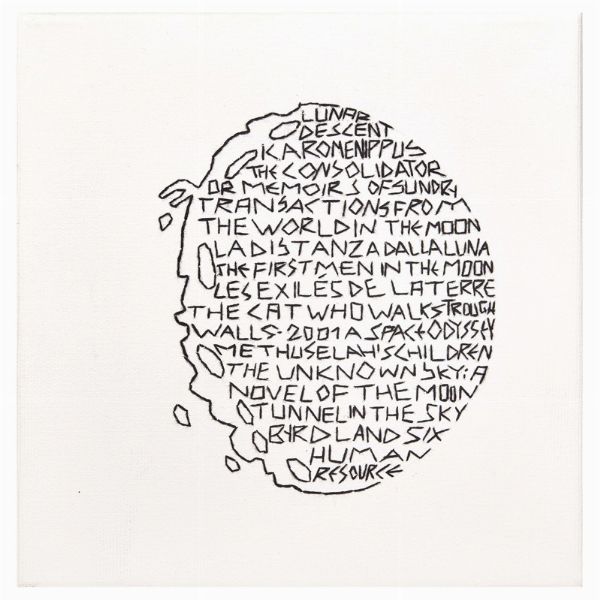 LUNAR
DESCENT
ICAROMENIPPUS
THE CONSOLIDATOR
OR MEMOIRS OF SUNDRY
TRANSACTIONS FROM
THE WORLD IN THE MOON
LA DISTANZA DALLA LUNA
THE FIRST MEN IN THE MOON
LES EXILÉS DE LA TERRE
THE CAT WHO WALKS TROUGH
WALLS-2001 A SPACE ODYSSEY
METHUSELAH'S CHILDREN
THE UNKNOWN SKY: A
NOVEL OF THE MOON
TUNNEL IN THE SKY
BYRD LAND SIX
HUMAN
RESOURCE